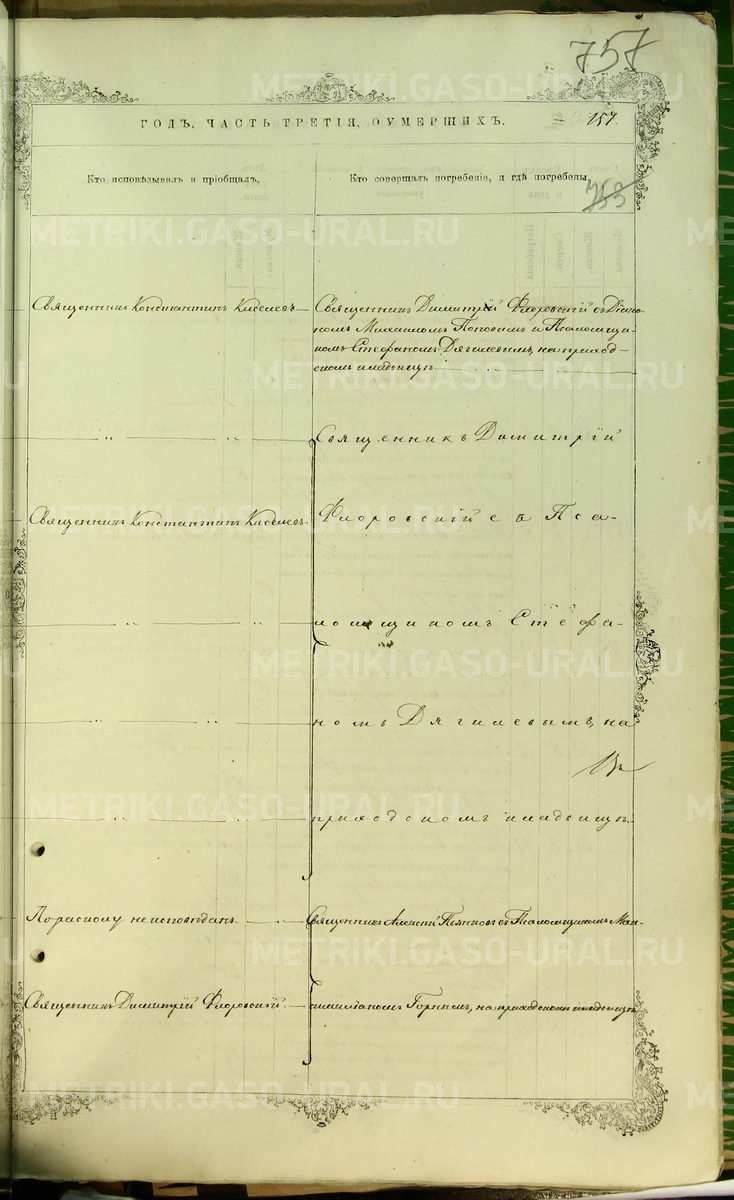 757
ГОДЪ, ЧАСТЬ ТРЕТІЯ, О УМЕРШИХЪ.
157.
Кто исповѣдывалъ и пріобщалъ,
Кто совершалъ погребеніе, и гдѣ погребены,
753
Священникъ Константинъ Киселевъ
Священникъ Димитрій Флоровскій съ Діако-
номъ Михаиломъ Поповымъ и Псаломщи-
комъ Стефаномъ Дягилевымъ, на приход-
скомъ кладбищѣ
Священникъ Димитрій
Священникъ Константинъ Киселевъ
Флоровскій съ Пса-
ломщикомъ Стефа-
номъ Дягилевымъ, на
приходскомъ кладбищѣ.
По расколу не исповѣданъ
Священникъ Алексій съ Псаломщикомъ Мак-
Священникъ Димитрій Флоровскій
симиліаномъ Горнымъ, на приходскомъ кладбищѣ
METRIKI.GASO-URAL.RU